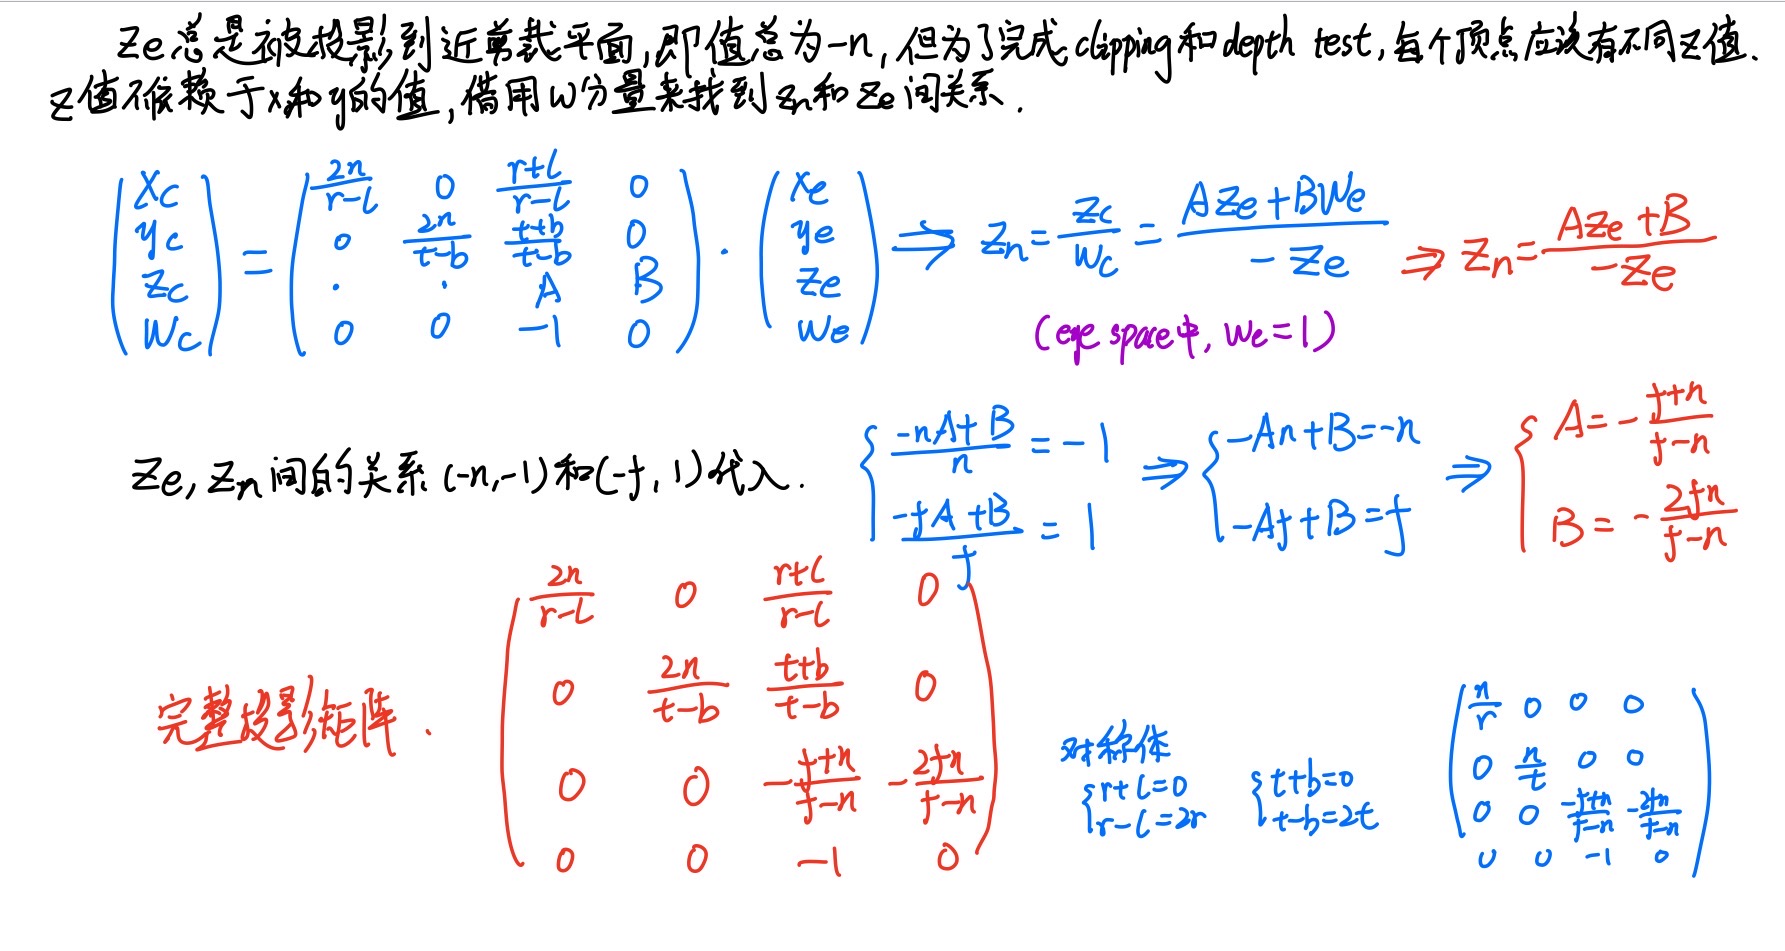 Ze总是被投影到近剪裁平面,即值总为-n,但为了完成clipping和depth test,每个顶点应该有不同Z值.
Z值不依赖于x和y的值,借用W分量来找到Zn和Ze间关系.
\begin{pmatrix} x_c \\ y_c \\ z_c \\ w_c \end{pmatrix} = \begin{pmatrix} \frac{2n}{r-l} & 0 & \frac{r+l}{r-l} & 0 \\ 0 & \frac{2n}{t-b} & \frac{t+b}{t-b} & 0 \\ \cdot & \cdot & A & B \\ 0 & 0 & -1 & 0 \end{pmatrix} \cdot \begin{pmatrix} x_e \\ y_e \\ z_e \\ w_e \end{pmatrix} \Rightarrow z_n = \frac{z_c}{w_c} = \frac{Az_e+Bw_e}{-z_e} \Rightarrow z_n = \frac{Az_e+B}{-z_e}
(eye space中, We=1)
Ze, Zn间的关系 (-n,-1)和(-f,1)代入. \begin{cases} \frac{-nA+B}{n} = -1 \\ \frac{-fA+B}{f} = 1 \end{cases} \Rightarrow \begin{cases} -An+B=-n \\ -Af+B=f \end{cases} \Rightarrow \begin{cases} A=-\frac{f+n}{f-n} \\ B=-\frac{2fn}{f-n} \end{cases}
完整投影矩阵. \begin{pmatrix} \frac{2n}{r-l} & 0 & \frac{r+l}{r-l} & 0 \\ 0 & \frac{2n}{t-b} & \frac{t+b}{t-b} & 0 \\ 0 & 0 & -\frac{f+n}{f-n} & -\frac{2fn}{f-n} \\ 0 & 0 & -1 & 0 \end{pmatrix}
对称体
\begin{cases} r+l=0 \\ r-l=2r \end{cases} \begin{cases} t+b=0 \\ t-b=2t \end{cases} \begin{pmatrix} \frac{n}{r} & 0 & 0 & 0 \\ 0 & \frac{n}{t} & 0 & 0 \\ 0 & 0 & \frac{-f+n}{f-n} & \frac{-2fn}{f-n} \\ 0 & 0 & -1 & 0 \end{pmatrix}